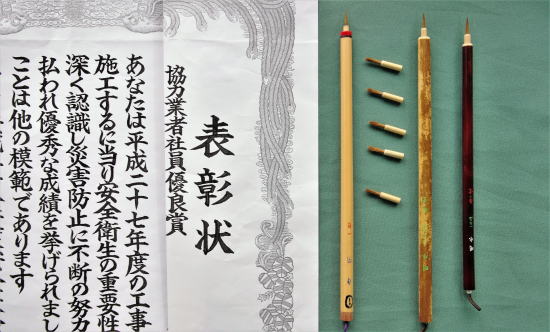 表彰状
協力業者社員優良賞
あなたは平成二十七年度の工事
施工するに当り安全衛生の重要性
深く認識し災害防止に不断の努力
払われ優秀な成績を挙げられまし
ことは他の模範であります